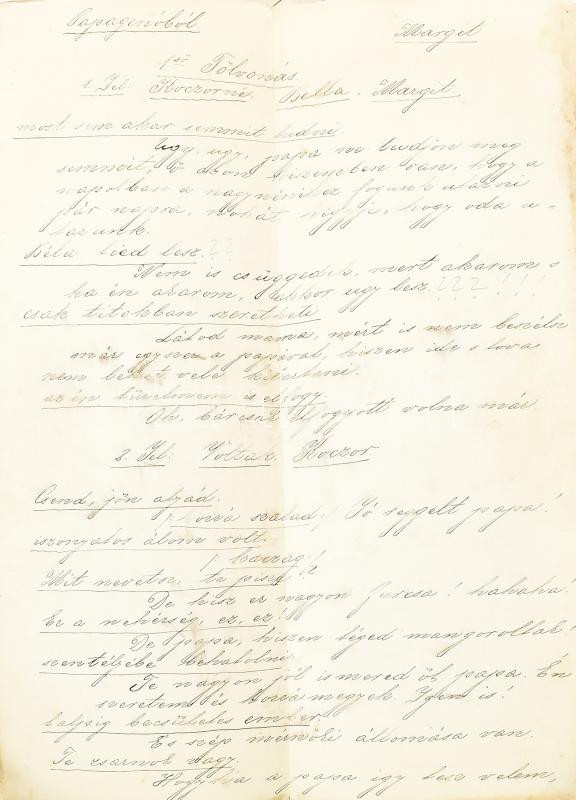 Papagenóból.
Margit
1ső Fölvonás
1. Jel. Koczorné. Bella. Margit.
most sem akar semmit tudni.
Ugy, ugy, papa ne tudjon meg
semmit, ő azon hiszemben van, hogy a
napokban a nagynénihez fogunk utazni
pár napra, hogy oda u-
tazunk.
Béla tied lesz.??
Nem is csüggedek, mert akarom s
ha én akarom, akkor ugy lesz ???!!!
csak titokban szeretheti
Látod mama, mért is nem beszélsz
már egyszer a papával, hiszen ide s tova
nem lehet vele kitartani.
az én türelmem is elfogy.
Oh, bárcsak elfogyott volna már.
2. Jel: Voltak. Koczor.
Csend, jön atyád.
/: hozzá szalad :/ Jó reggelt papa!
iszonyatos álom volt.
/: kaczag!
Mit nevetsz, te pisze!?
De hisz ez nagyon furcsa! hahaha!
Ez a nehézség, ez, ez!
De papa, hiszen téged mángoroltak!
szentéljébe behatolni.
Te nagyon jól ismered őt papa. Én
szeretem és hozzá megyek. Igen is!
talpig becsületes ember.
És szép mérnöki állomása van.
Te zsarnok vagy.
Hogyha a papa igy tesz velem,